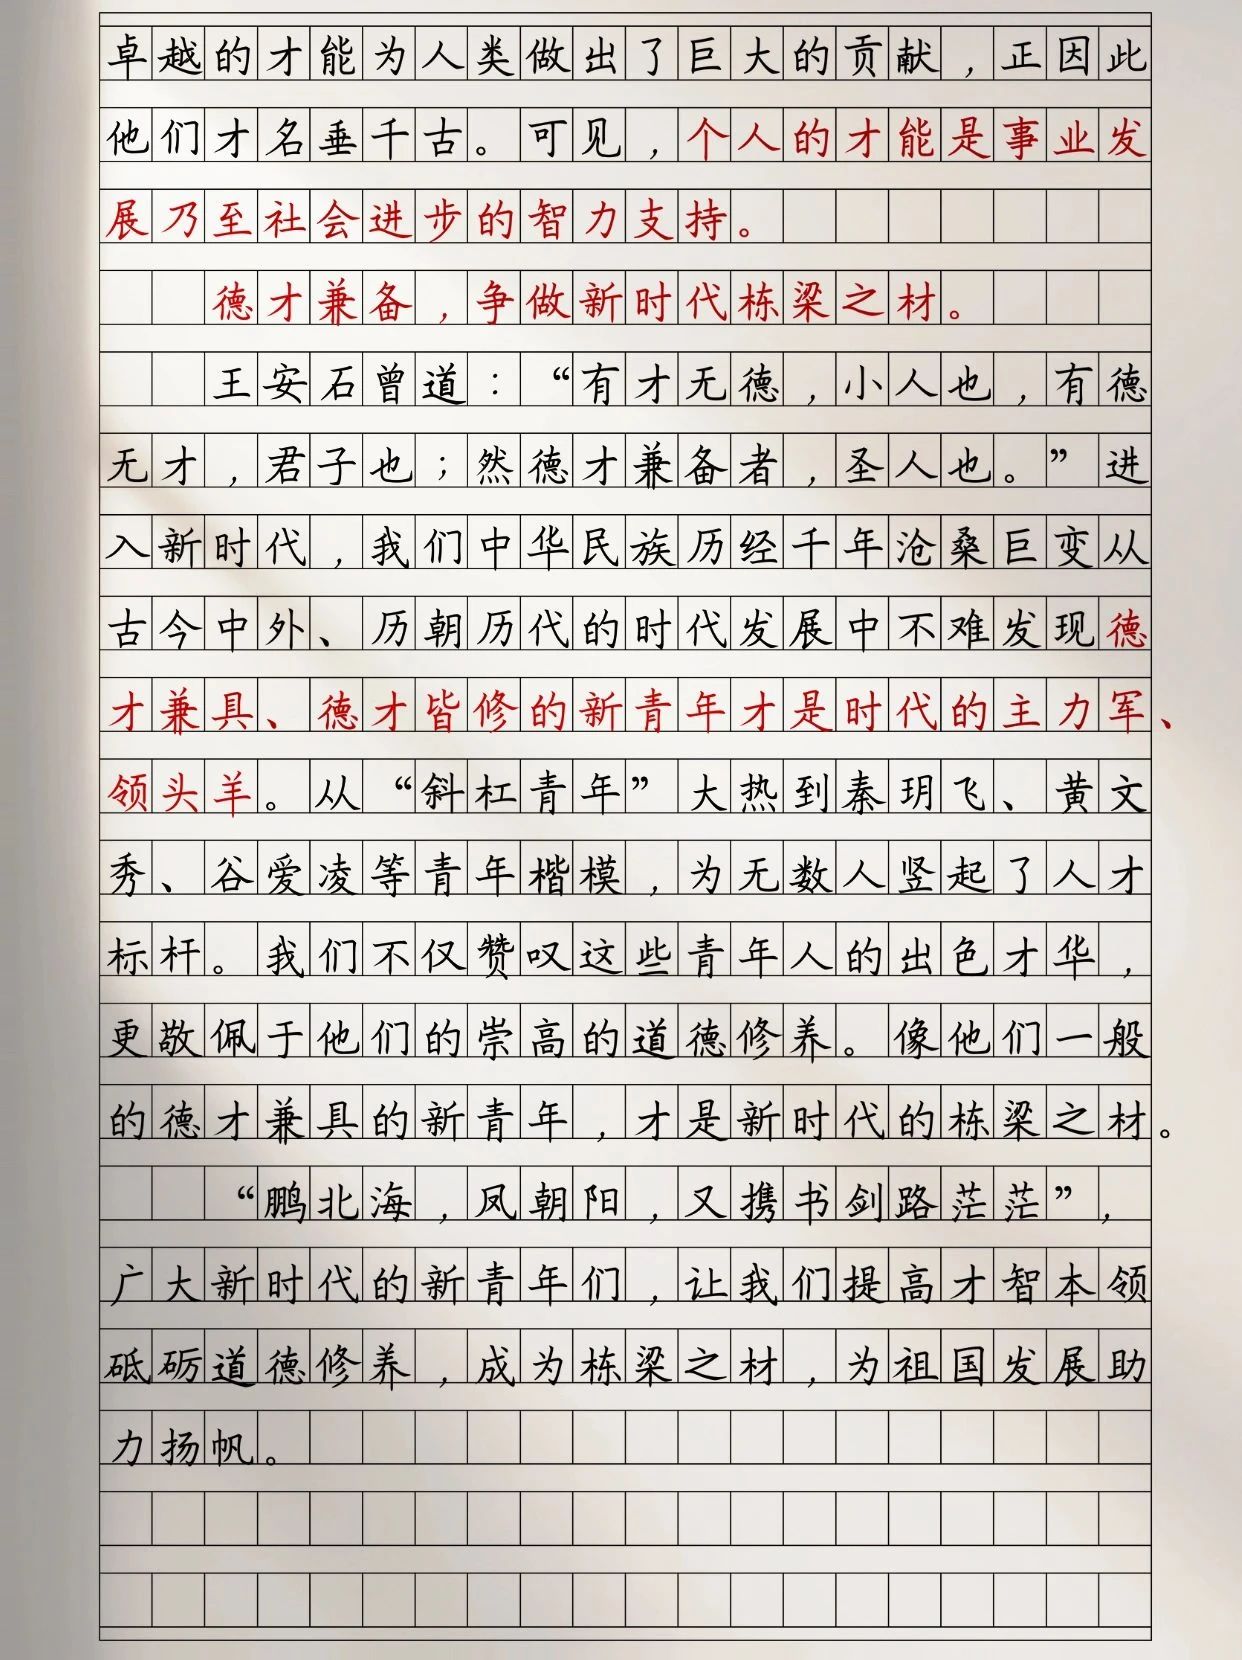 卓越的才能为人类做出了巨大的贡献，正因此
他们才名垂千古。可见，个人的才能是事业发
展乃至社会进步的智力支持。
德才兼备，争做新时代栋梁之材。
王安石曾道：“有才无德，小人也，有德
无才，君子也；然德才兼备者，圣人也。”进
入新时代，我们中华民族历经千年沧桑巨变从
古今中外、历朝历代的时代发展中不难发现德
才兼具、德才皆修的新青年才是时代的主力军、
领头羊。从“斜杠青年”大热到秦玥飞、黄文
秀、谷爱凌等青年楷模，为无数人竖起了人才
标杆。我们不仅赞叹这些青年人的出色才华，
更敬佩于他们的崇高的道德修养。像他们一般
的德才兼具的新青年，才是新时代的栋梁之材。
“鹏北海，凤朝阳，又携书剑路茫茫”，
广大新时代的新青年们，让我们提高才智本领
砥砺道德修养，成为栋梁之材，为祖国发展助
力扬帆。